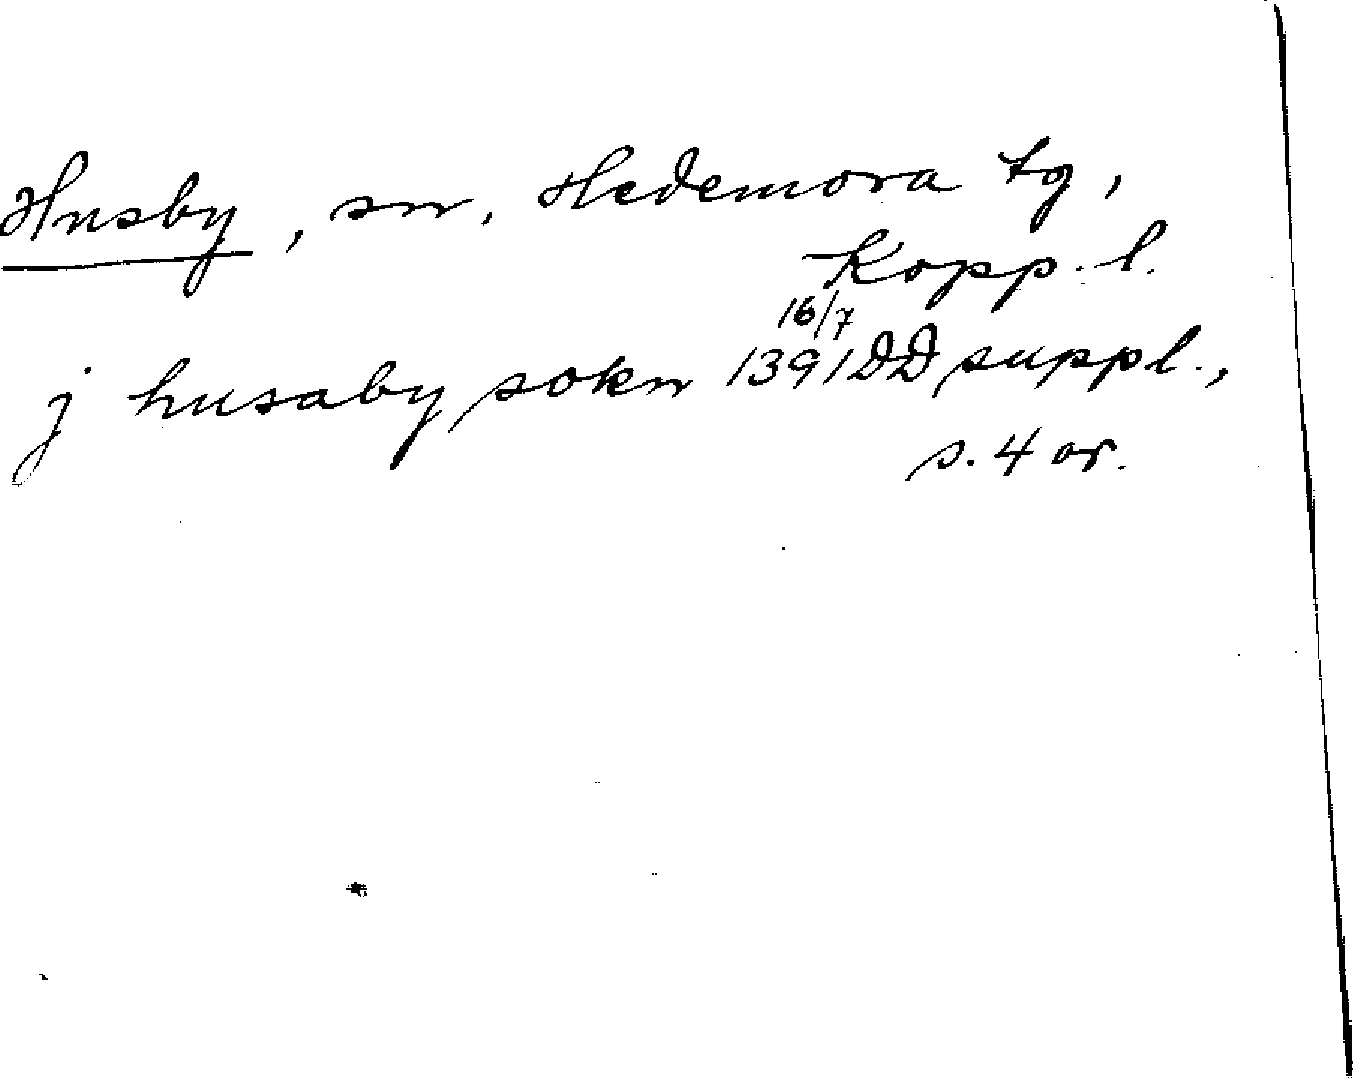 Husby, sn, Hedemora tg,
Kopp. l.
j husaby sokn 16/7 1391 DD suppl.,
s. 4 or.